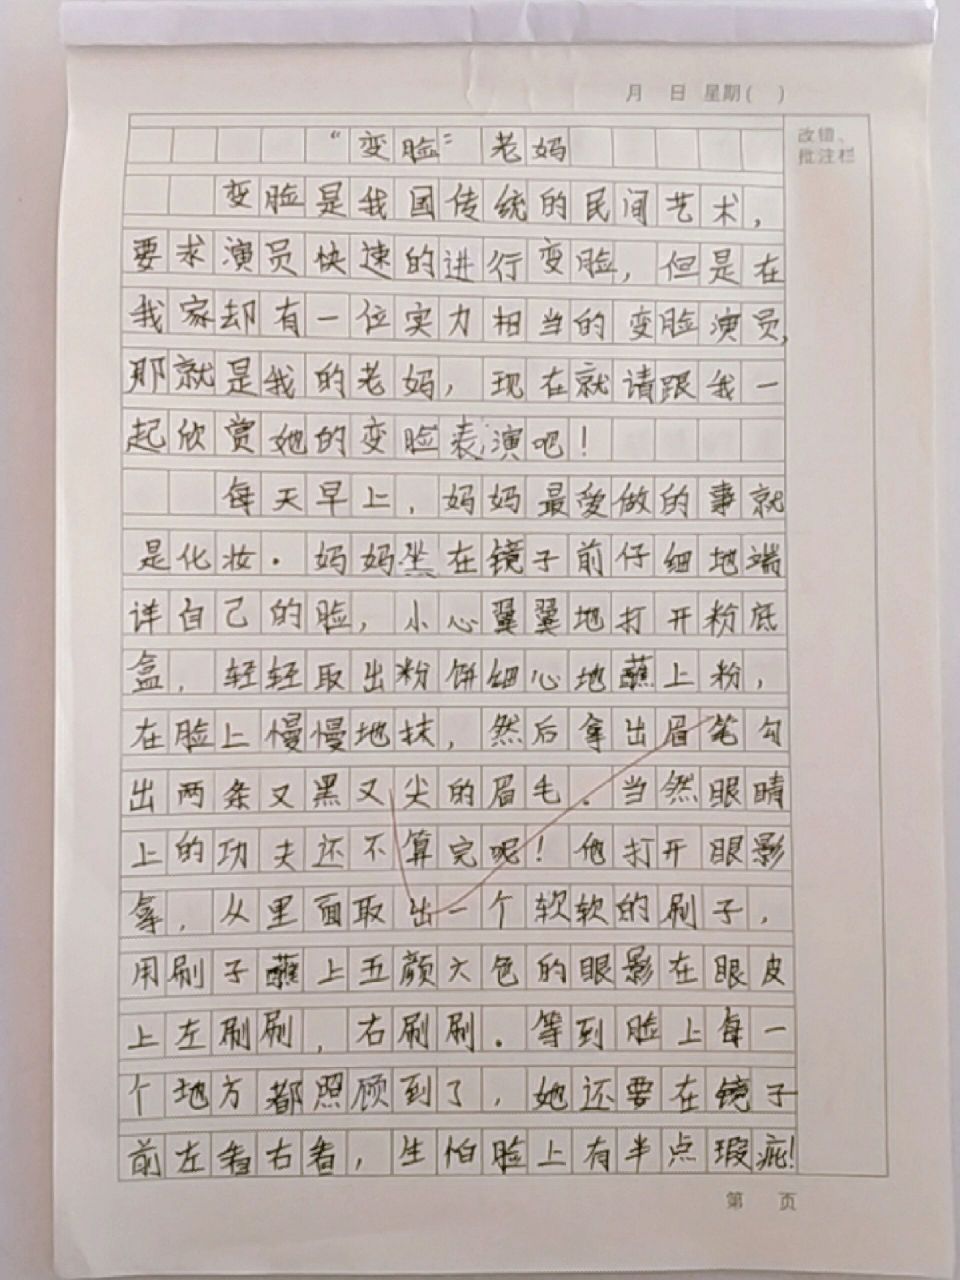 月 日 星期( )
改错、
批注栏
“变脸”老妈
变脸是我国传统的民间艺术，
要求演员快速的进行变脸，但是在
我家却有一位实力相当的变脸演员，
那就是我的老妈，现在就请跟我一
起欣赏她的变脸表演吧！
每天早上，妈妈最爱做的事就
是化妆。妈妈坐在镜子前仔细地端
详自己的脸，小心翼翼地打开粉底
盒，轻轻取出粉饼细心地蘸上粉，
在脸上慢慢地抹，然后拿出眉笔勾
出两条又黑又尖的眉毛。当然眼睛
上的功夫还不算完呢！他打开眼影
，从里面取出一个软软的刷子，
用刷子蘸上五颜六色的眼影在眼皮
上左刷刷，右刷刷。等到脸上每一
个地方都照顾到了，她还要在镜子
前左看右看，生怕脸上有半点瑕疵！
第 页